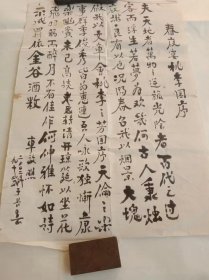 春夜宴桃李園序
夫天地者萬物之逆旅光陰者百代之過
客而浮生若夢為歡幾何古人秉燭
夜遊良有以也況陽春召我以煙景大塊
假我以文章會桃李之芳園序天倫之樂
事群季俊秀皆為惠連吾人詠歌獨慚康
樂幽賞未已高談轉清開瓊筵以坐花
飛羽觴而醉月不有佳作何伸雅懷如詩
不成罰依金谷酒數